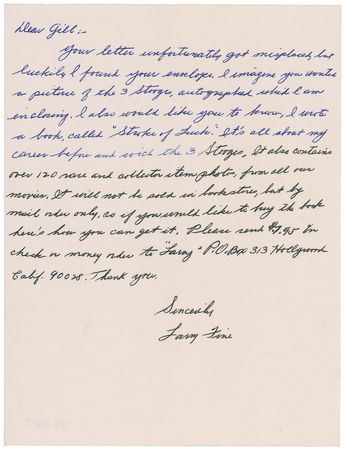 Dear Gill:-
Your letter unfortunately got misplaced, but
luckily, I found your envelope. I imagine you wanted
a picture of the 3 Stooges, autographed which I am
enclosing. I also would like you to know, I wrote
a book, called "Stroke of Luck." It's all about my
career before and with the 3 Stooges. It also contains
over 120 rare and collector item photos, from all our
movies. It will not be sold in bookstores, but by
mail order only, so if you would like to buy the book
here's how you can get it. Please send $7.95 In
check or money order to "Larry" P.O. Box 313 Hollywood
Calif. 90028. Thank you.
Sincerely
Larry Fine